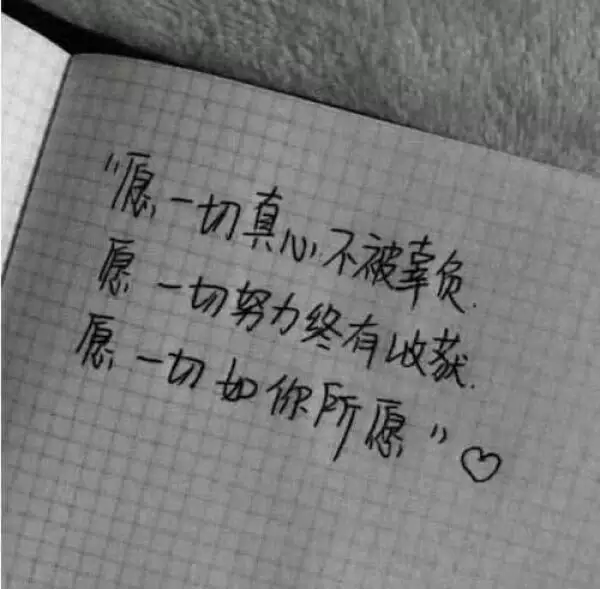 "愿一切真心不被辜负.
愿一切努力终有收获.
愿一切如你所愿"♡